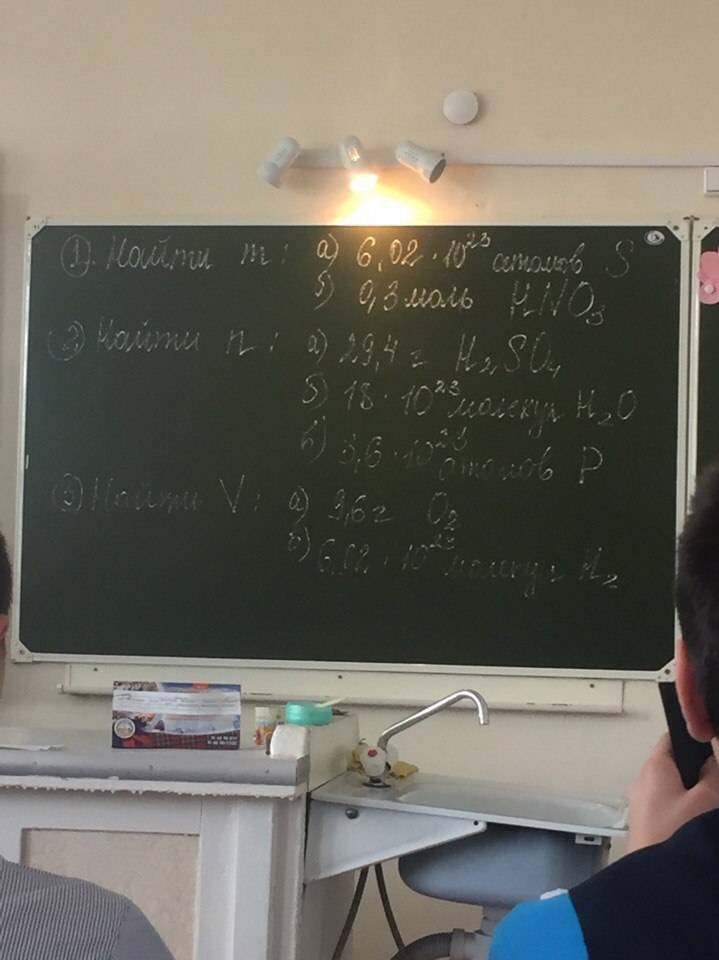 ① Найти m: а) 6,02·10²³ атомов S
б) 0,3 моль HNO₃
② Найти n: а) 29,4 г H₂SO₄
б) 18·10²³ молекул H₂O
в) 3,6·10²³ атомов P
③ Найти V: а) 9,6 г O₂
б) 6,02·10²³ молекул H₂